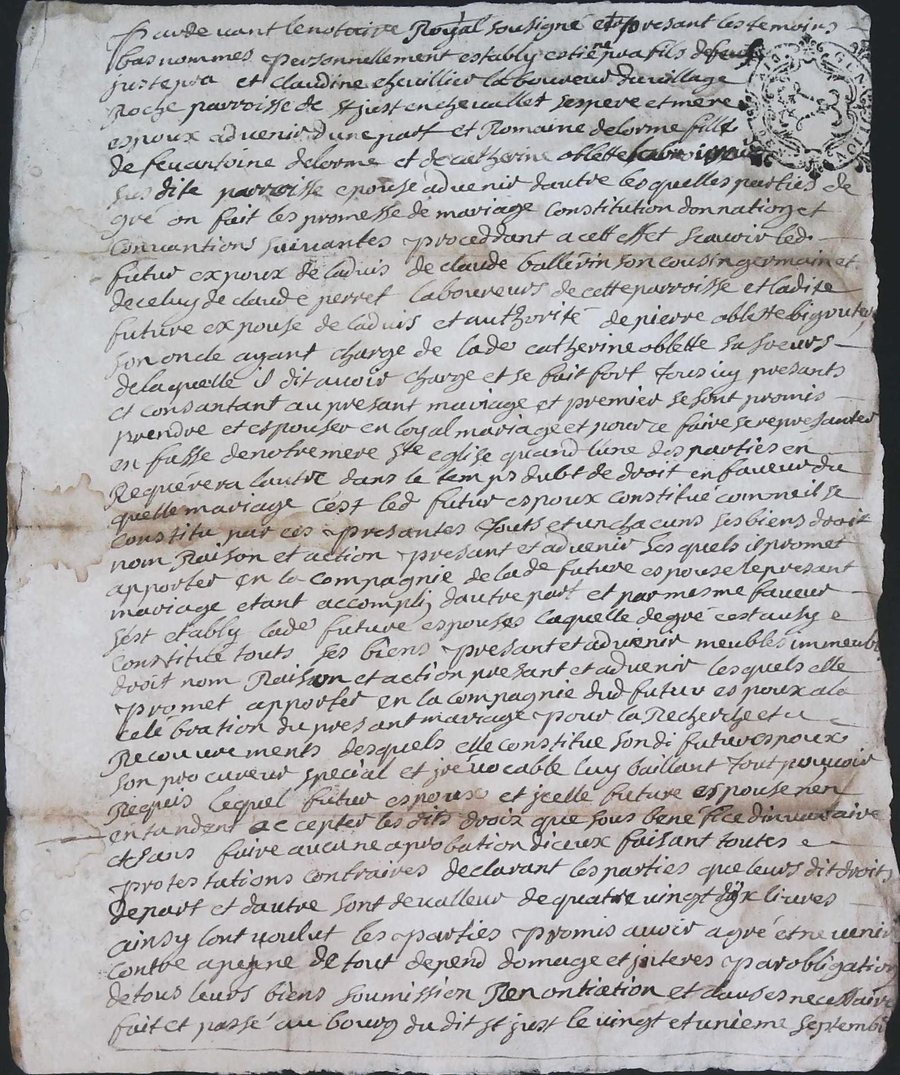 Pardevant le notaire Royal sousigné et presant les temoins
bas nommes personnellement estably estiene pra fils de feu
just pra et claudine chevillier laboureur du village
Roche parroisse de st just en chevallet ses pere et mere
espoux advenir dune part et Romaine delorme fille
de feu antoine delorme et de catherine oblette
sus dite parroisse epouse advenir dautre lesquelles parties de
gré on fait les promesse de mariage constitution donnation et
convantions suivantes proceddant a cett effet scavoir led
futur expoux de ladvis de claude ballerin son cousin germain et
de celuy de claude perret laboureurs de cette parroisse et ladite
future expouse de ladvis et authorité de pierre oblette bigoutey
son oncle ayant charge de lade catherine oblette sa soeurs
de laquelle il dit avoir charge et se fait fort tous icy presants
et consantant au presant mariage et premier se sont promis
prendre et espouser en loyal mariage et pour ce faire se representer
en fasse de notre mere ste eglise quand lune des parties en
Requérera lautre dans le temps dubt de droit en faveur du
quelle mariage cest led futur espoux constitue comme il se
constitu par ces presantes touts et un chacuns ses biens droit
nom Raison et action presant et advenir lesquels il promet
apporter en la compagnie de lade future espouse le presant
mariage etant accomplij dautre part et par mesme faveur
sest etably lade future espouses laquelle de gré cest ausy
constitue touts ses biens presant et advenir meubles immeubl
droit nom Raison et action presant et advenir lesquels elle
promet apporter en la compagnie dud futur espoux a la
cele bration du presant mariage pour la Recherche et
Recouvrements desquels elle constitue sondi futur espoux
son procureur special et jrevocable luy baillant tout pouvoir
Requis lequel futur espoux et jcelle future espouse nen
entandent accepter les dits droix que sous benefice dinvantaire
et sans faire aucune aprobation diceux faisant toutes
protestations contraires declarant les parties que leurs dit droit
de part et dautre sont de valleur de quatre vingt dix livres
ainsy lont voulut les parties promis avoir agré et ne venir
contre a penne de tout depend domage et jnteres par obligation
de tous leurs biens soumission Renontiation et clauses necessaire
fait et passé au bourg du dit st just le vingt et unieme septemb